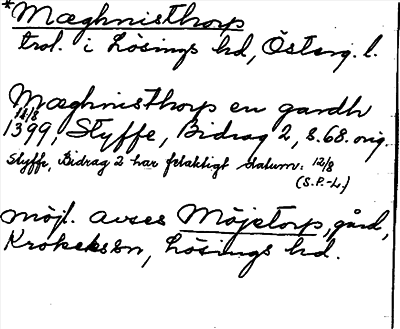 *Mæghnisthorp
trol. i Lösings hd, Österg. l.
Mæghnisthorp en gardh
14/8
1399, Styffe, Bidrag 2, s. 68. orig.
Styffe, Bidrag 2 har felaktigt datum: 12/8
(S.P.-L.)
möjl. avses Möjetorp, gård,
Krokeks sn, Lösings hd.